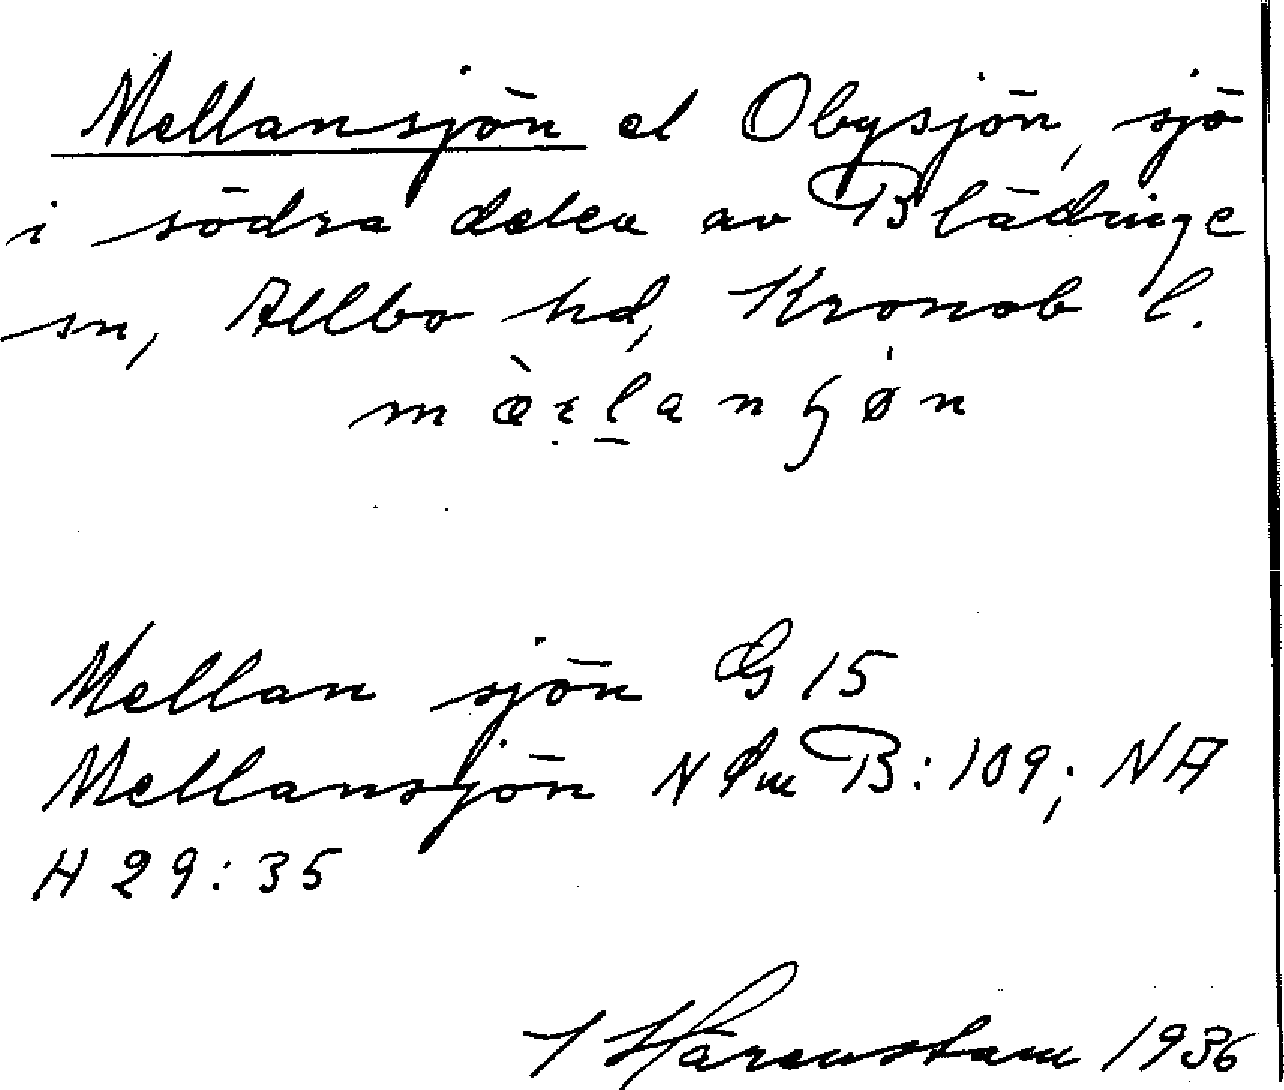 Mellansjön el Obysjön, sjö
i södra delen av Blädinge
sn, Allbo hd, Kronob l.
Mellan sjön G 15
Mellansjön N Sm B: 109; NA
H 29: 35
Härenstam 1936